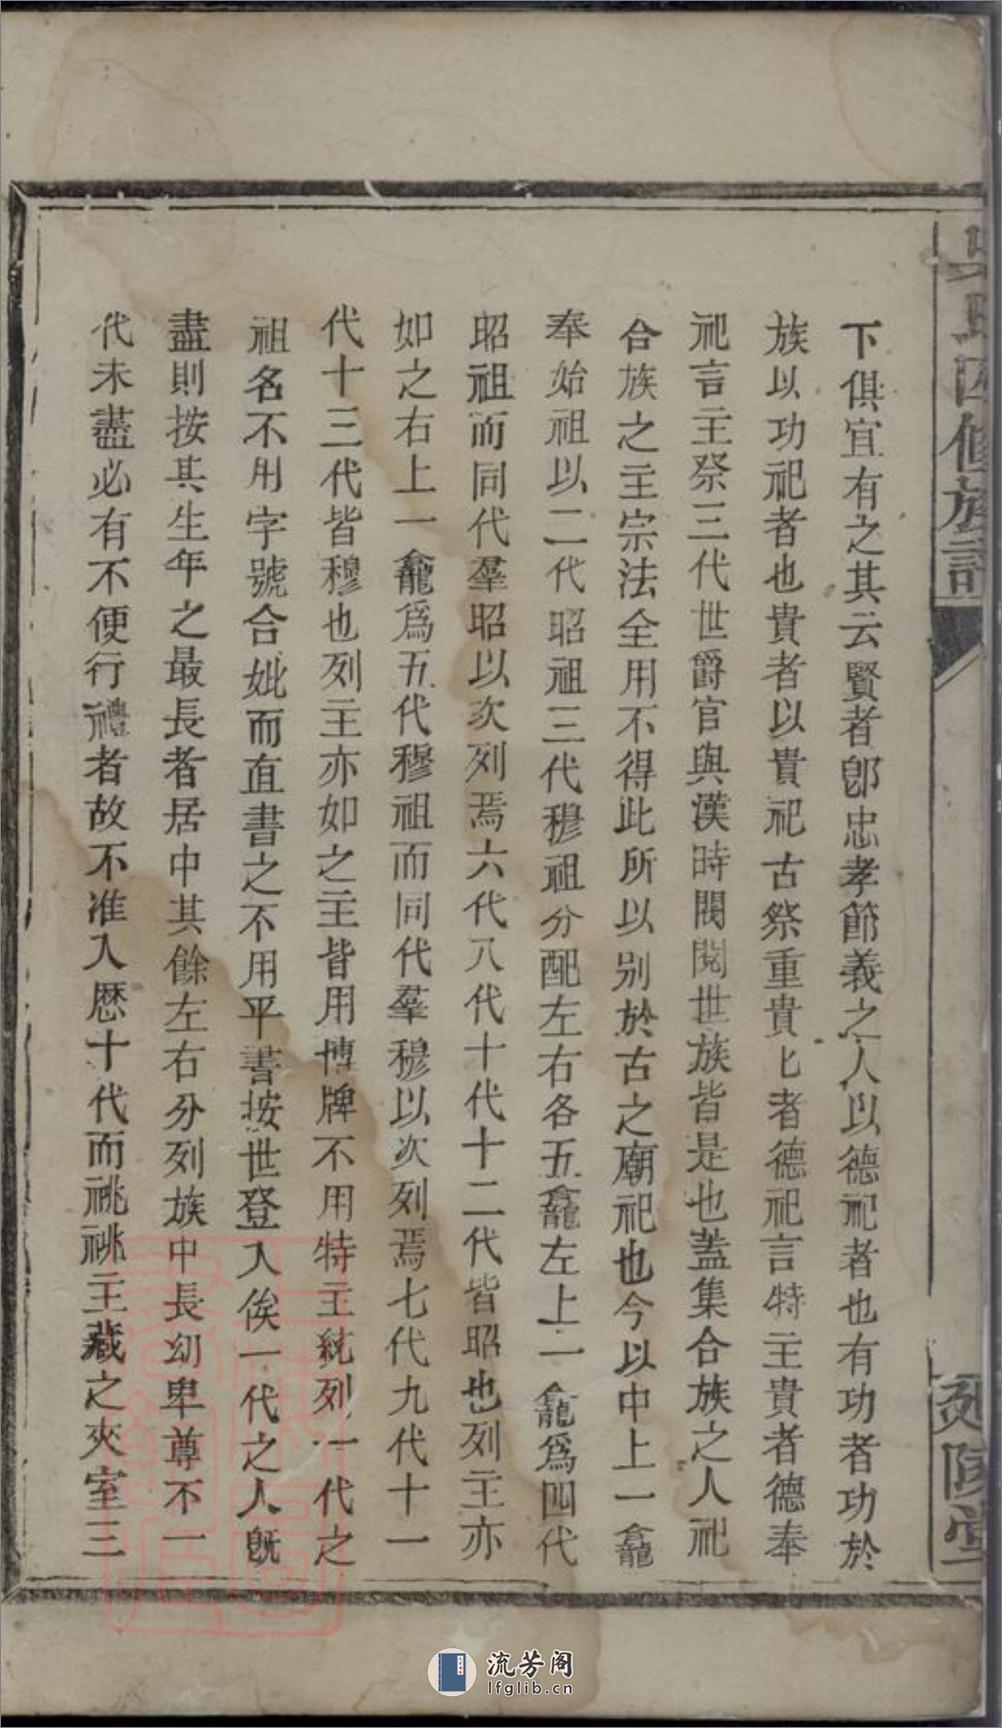 吳氏四修族譜
延陵堂
下俱宜有之其云賢者卽忠孝節義之人以德祀者也有功者功於
族以功祀者也貴者以貴祀古祭重貴匕者德祀言特主貴者德奉
祀言主祭三代世爵官與漢時閥閱世族皆是也蓋集合族之人祀
合族之主宗法全用不得此所以别於古之廟祀也今以中上一龕
奉始祖以二代昭祖三代穆祖分配左右各五龕左上一龕爲四代
昭祖而同代羣昭以次列焉六代八代十代十二代皆昭也列主亦
如之右上一龕爲五代穆祖而同代羣穆以次列焉七代九代十一
代十三代皆穆也列主亦如之主皆用博牌不用特主統列一代之
祖名不用字號合妣而直書之不用平書按世登入俟一代之人旣
盡則按其生年之最長者居中其餘左右分列族中長幼卑尊不一
代未盡必有不便行禮者故不准入歴十代而祧祧主藏之夾室三
流芳阁
lfglib.cn